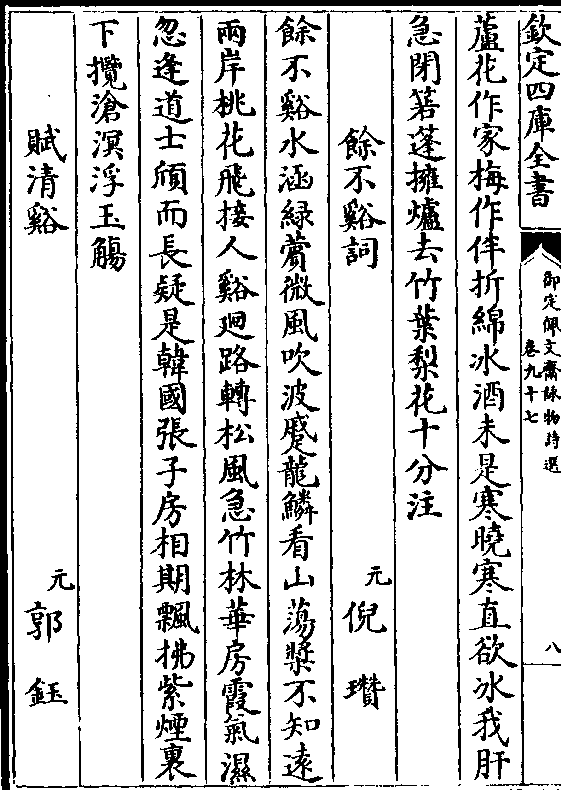 欽定四庫全書
御定佩文齋詠物詩選
卷九十七
八
蘆花作家梅作伴折綿冰酒未是寒曉寒直欲冰我肝
急閉篛篷擁爐去竹葉梨花十分注
餘不谿詞
元倪瓚
餘不谿水涵綠薲微風吹波蹙龍鱗看山蕩槳不知遠
兩岸桃花飛接人谿迴路轉松風急竹林華房霞氣濕
忽逢道士頎而長疑是韓國張子房相期飄拂紫煙裏
下攬滄溟浮玉觴
賦清谿
元郭鈺